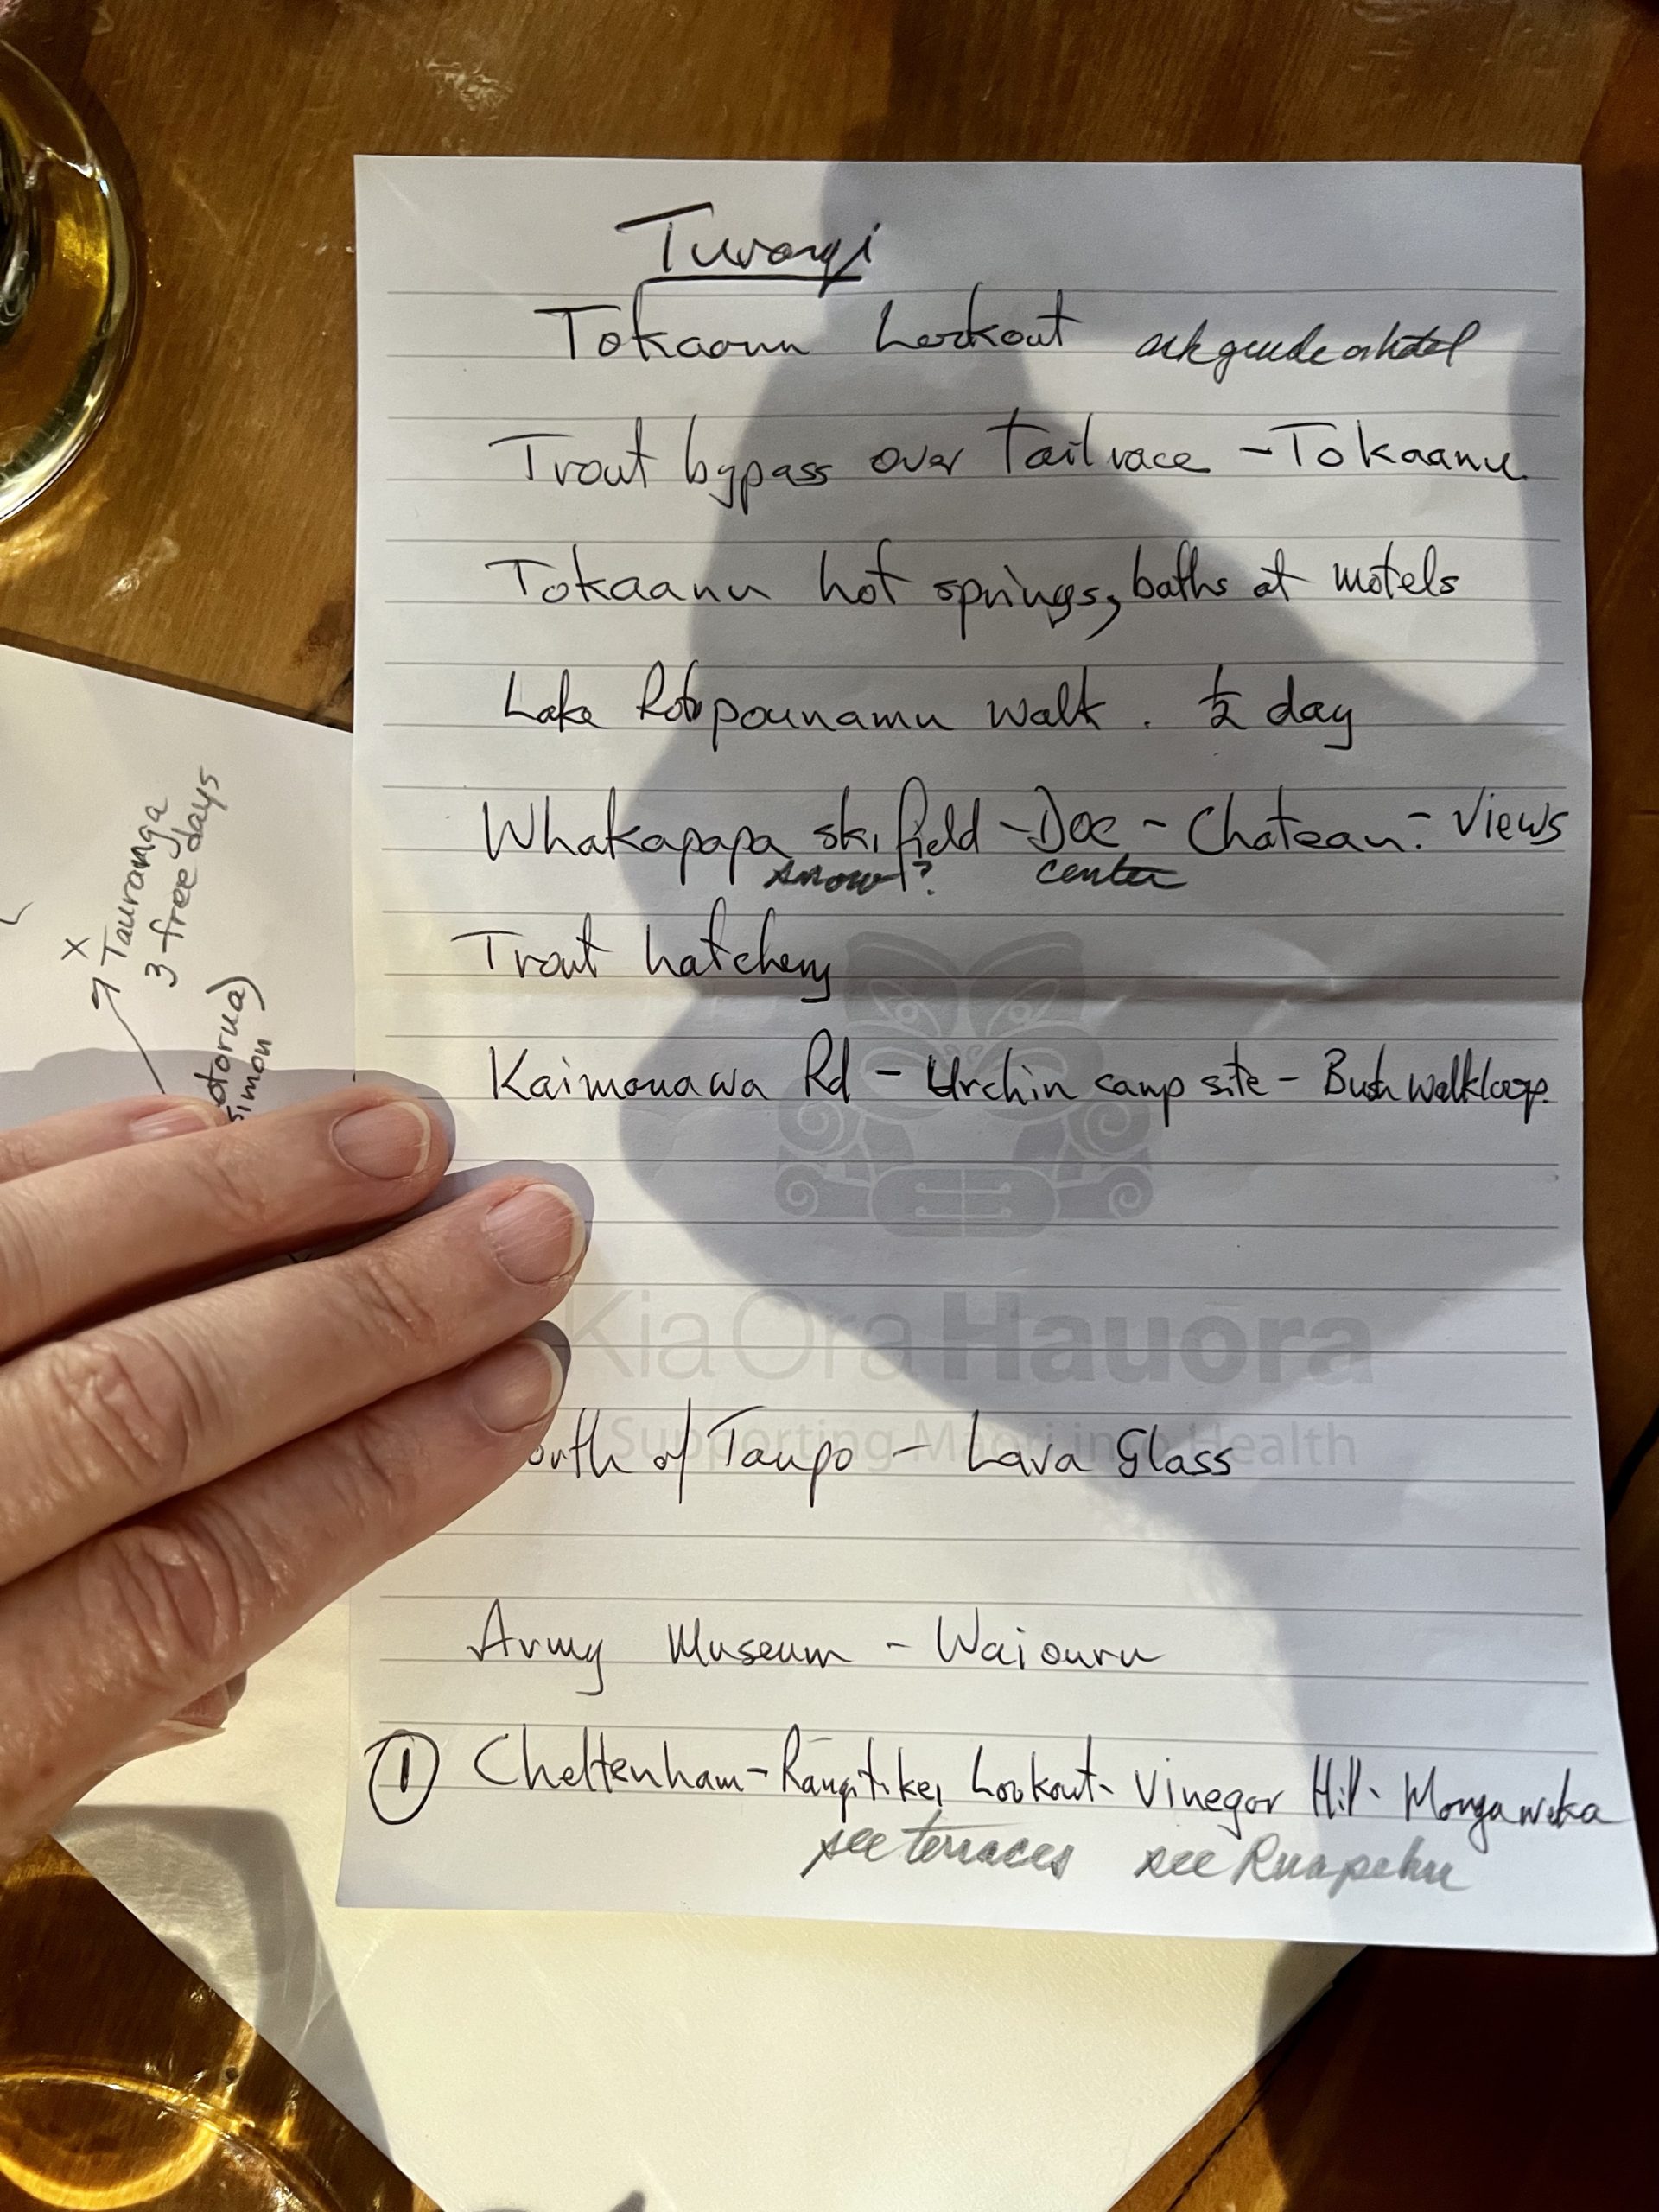 Turangi
Tokaanu Lookout ask guide at hotel
Trout bypass over tailrace - Tokaanu
Tokaanu hot springs, baths at motels
Lake Rotopounamu walk. ½ day
Whakapapa ski field - DOC - Chateau - Views
snow? center
Trout hatchery
Kaimanawa Rd - Urchin camp site - Bush walk loop.
Kia Ora Hauora
Supporting Māori into Health
orth of Taupo - Lava Glass
Army Museum - Waiouru
① Cheltenham - Rangitikei Lookout - Vinegar Hill - Mangaweka
see terraces see Ruapehu
x
→ Tauranga
3 free days
otorua)
simon